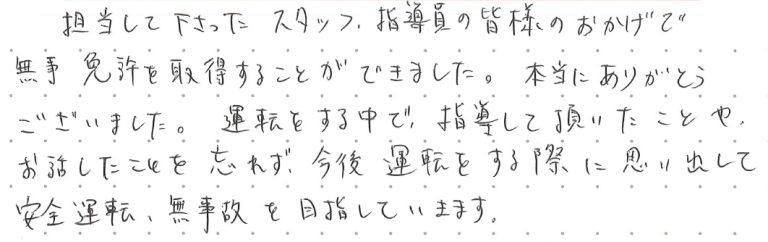 担当して下さった スタッフ、指導員の皆様のおかげで
無事 免許を取得することができました。 本当にありがとう
ございました。 運転をする中で、指導して頂いたことや、
お話したことを忘れず、今後 運転をする際に思い出して
安全運転、無事故を目指していきます。